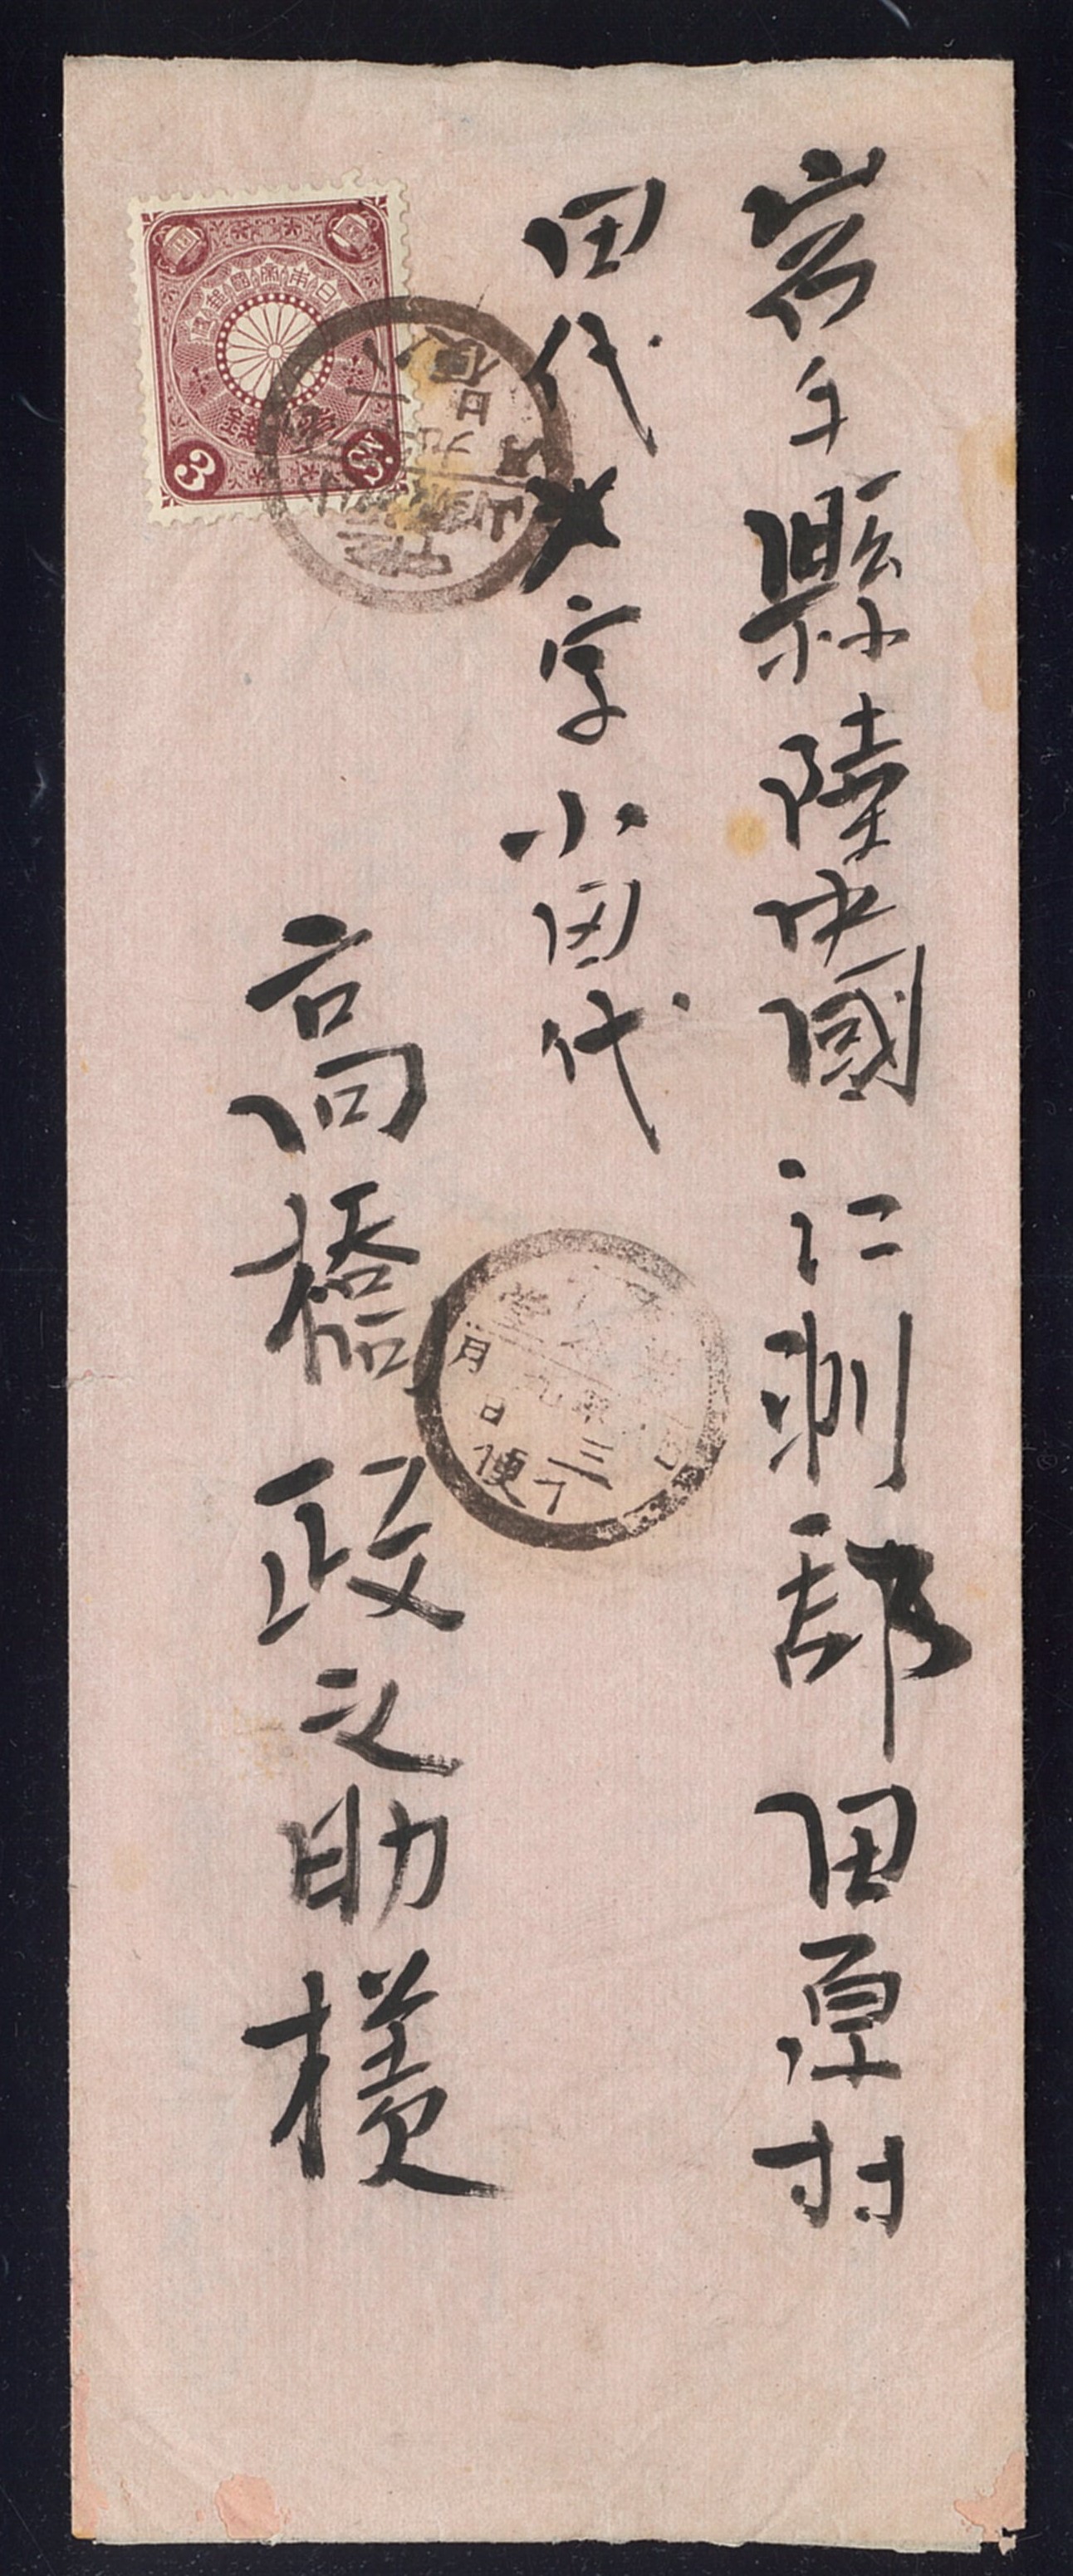 岩手縣陸中國江刺郡田原村
田代 字小田代
高橋政之助様
大日本帝國郵便
3 Sn.
月 日 便
九年
三